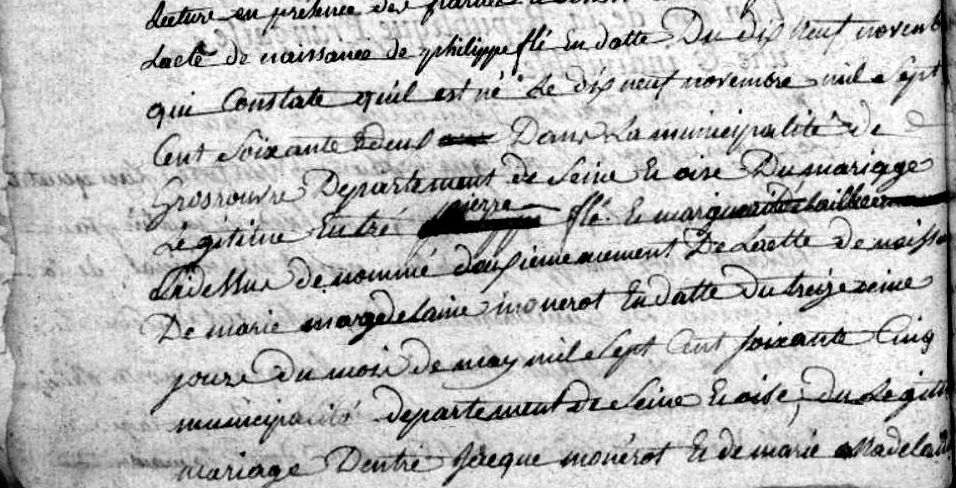 Lecture en presence des parties
Lacte de naissance de philippe flé En datte Du dix neuf novemb
qui Constate qu'il est né Le dix neuf novembre mil Sept
Cent Soixante Dans La municipalité de
Grosrouvre Departement de Seine Et oise Du mariage
Légitime Entré pierre flé Et marguerite
Cidessus dénommé deuxiemement De Lacte de naissa
De marie magdelaine monerot En datte du treizieme
jours du mois de may mil Sept Cent soixante Cinq
municipalité departement de Seine Et oise, du Legiti
mariage D'entré jacque monérot Et de marie Madelai